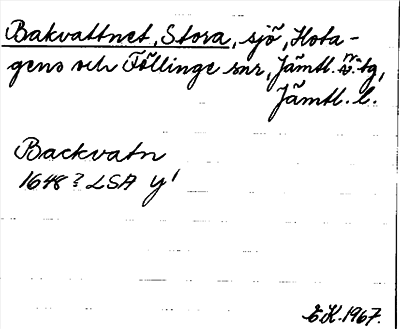 Bakvattnet, Stora, sjö, Hota-
gens och Föllinge snr, Jämtl. n. tg,
Jämtl. l.
Backvatn
1648? LSA Y1
E.K. 1967.